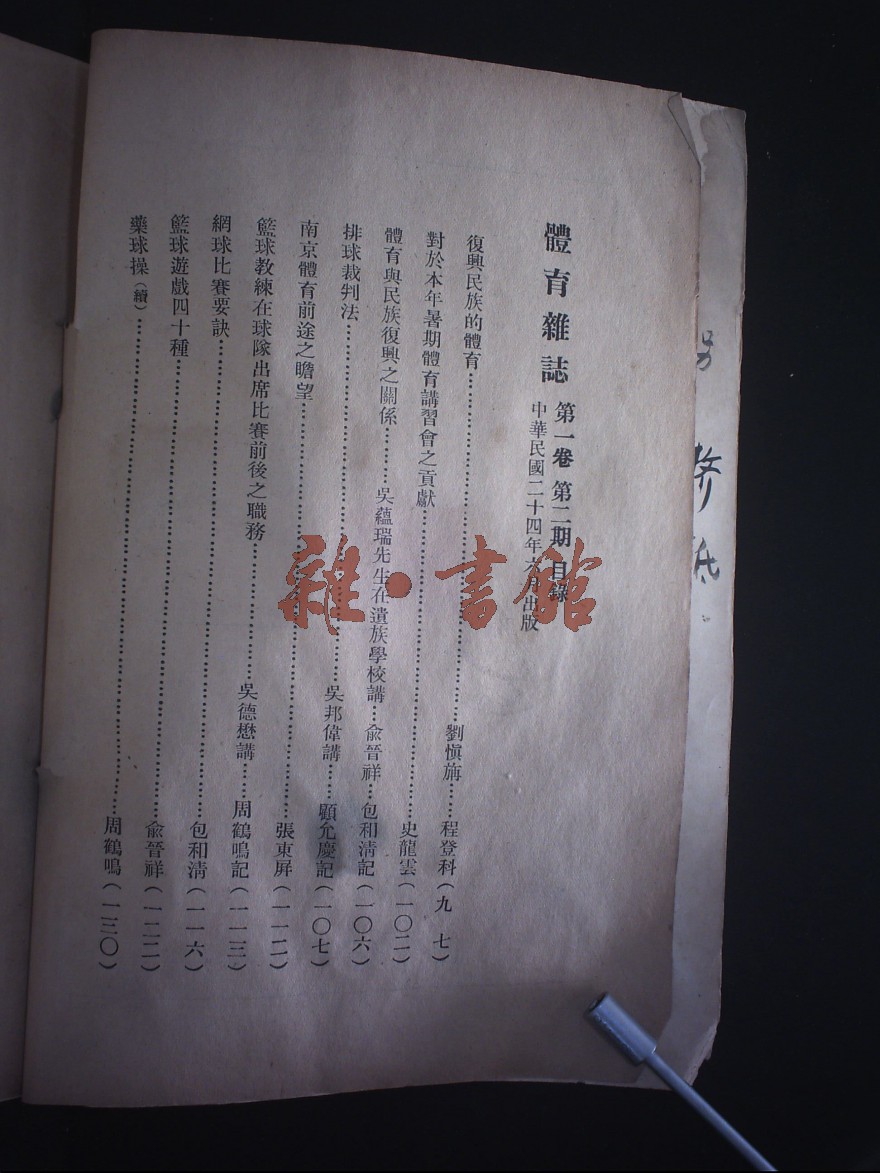 體育雜誌 第一卷 第二期 目錄
中華民國二十四年六月出版
復興民族的體育……劉慎旃……程登科(九七)
對於本年暑期體育講習會之貢獻……史龍雲(一〇二)
體育與民族復興之關係……吳蘊瑞先生在遺族學校講…俞晉祥…包和清記(一〇六)
排球裁判法……吳邦偉講……顧允慶記(一〇七)
南京體育前途之瞻望……張東屏(一一二)
籃球教練在球隊出席比賽前後之職務……吳德懋講……周鶴鳴記(一一三)
網球比賽要訣……包和清(一一六)
籃球遊戲四十種……俞晉祥(一二二)
藥球操(續)……周鶴鳴(一三〇)
雜·書館